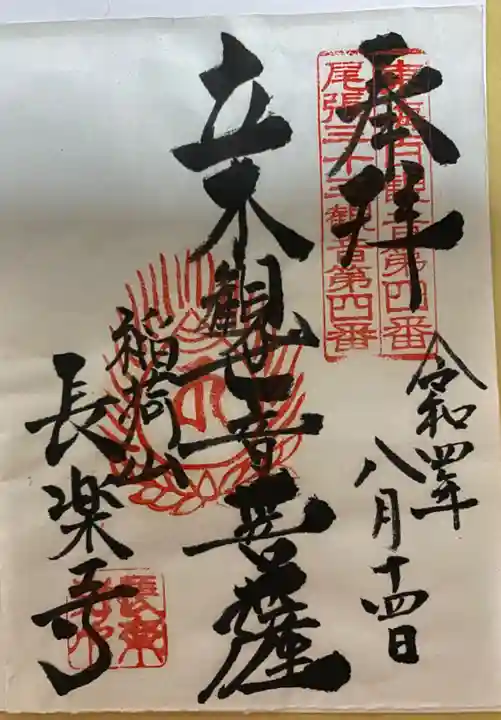 奉拝
東海百観音第四番
尾張三十三観音第四番
令和四年
八月十四日
立木観世音菩薩
稲荷山
長楽寺